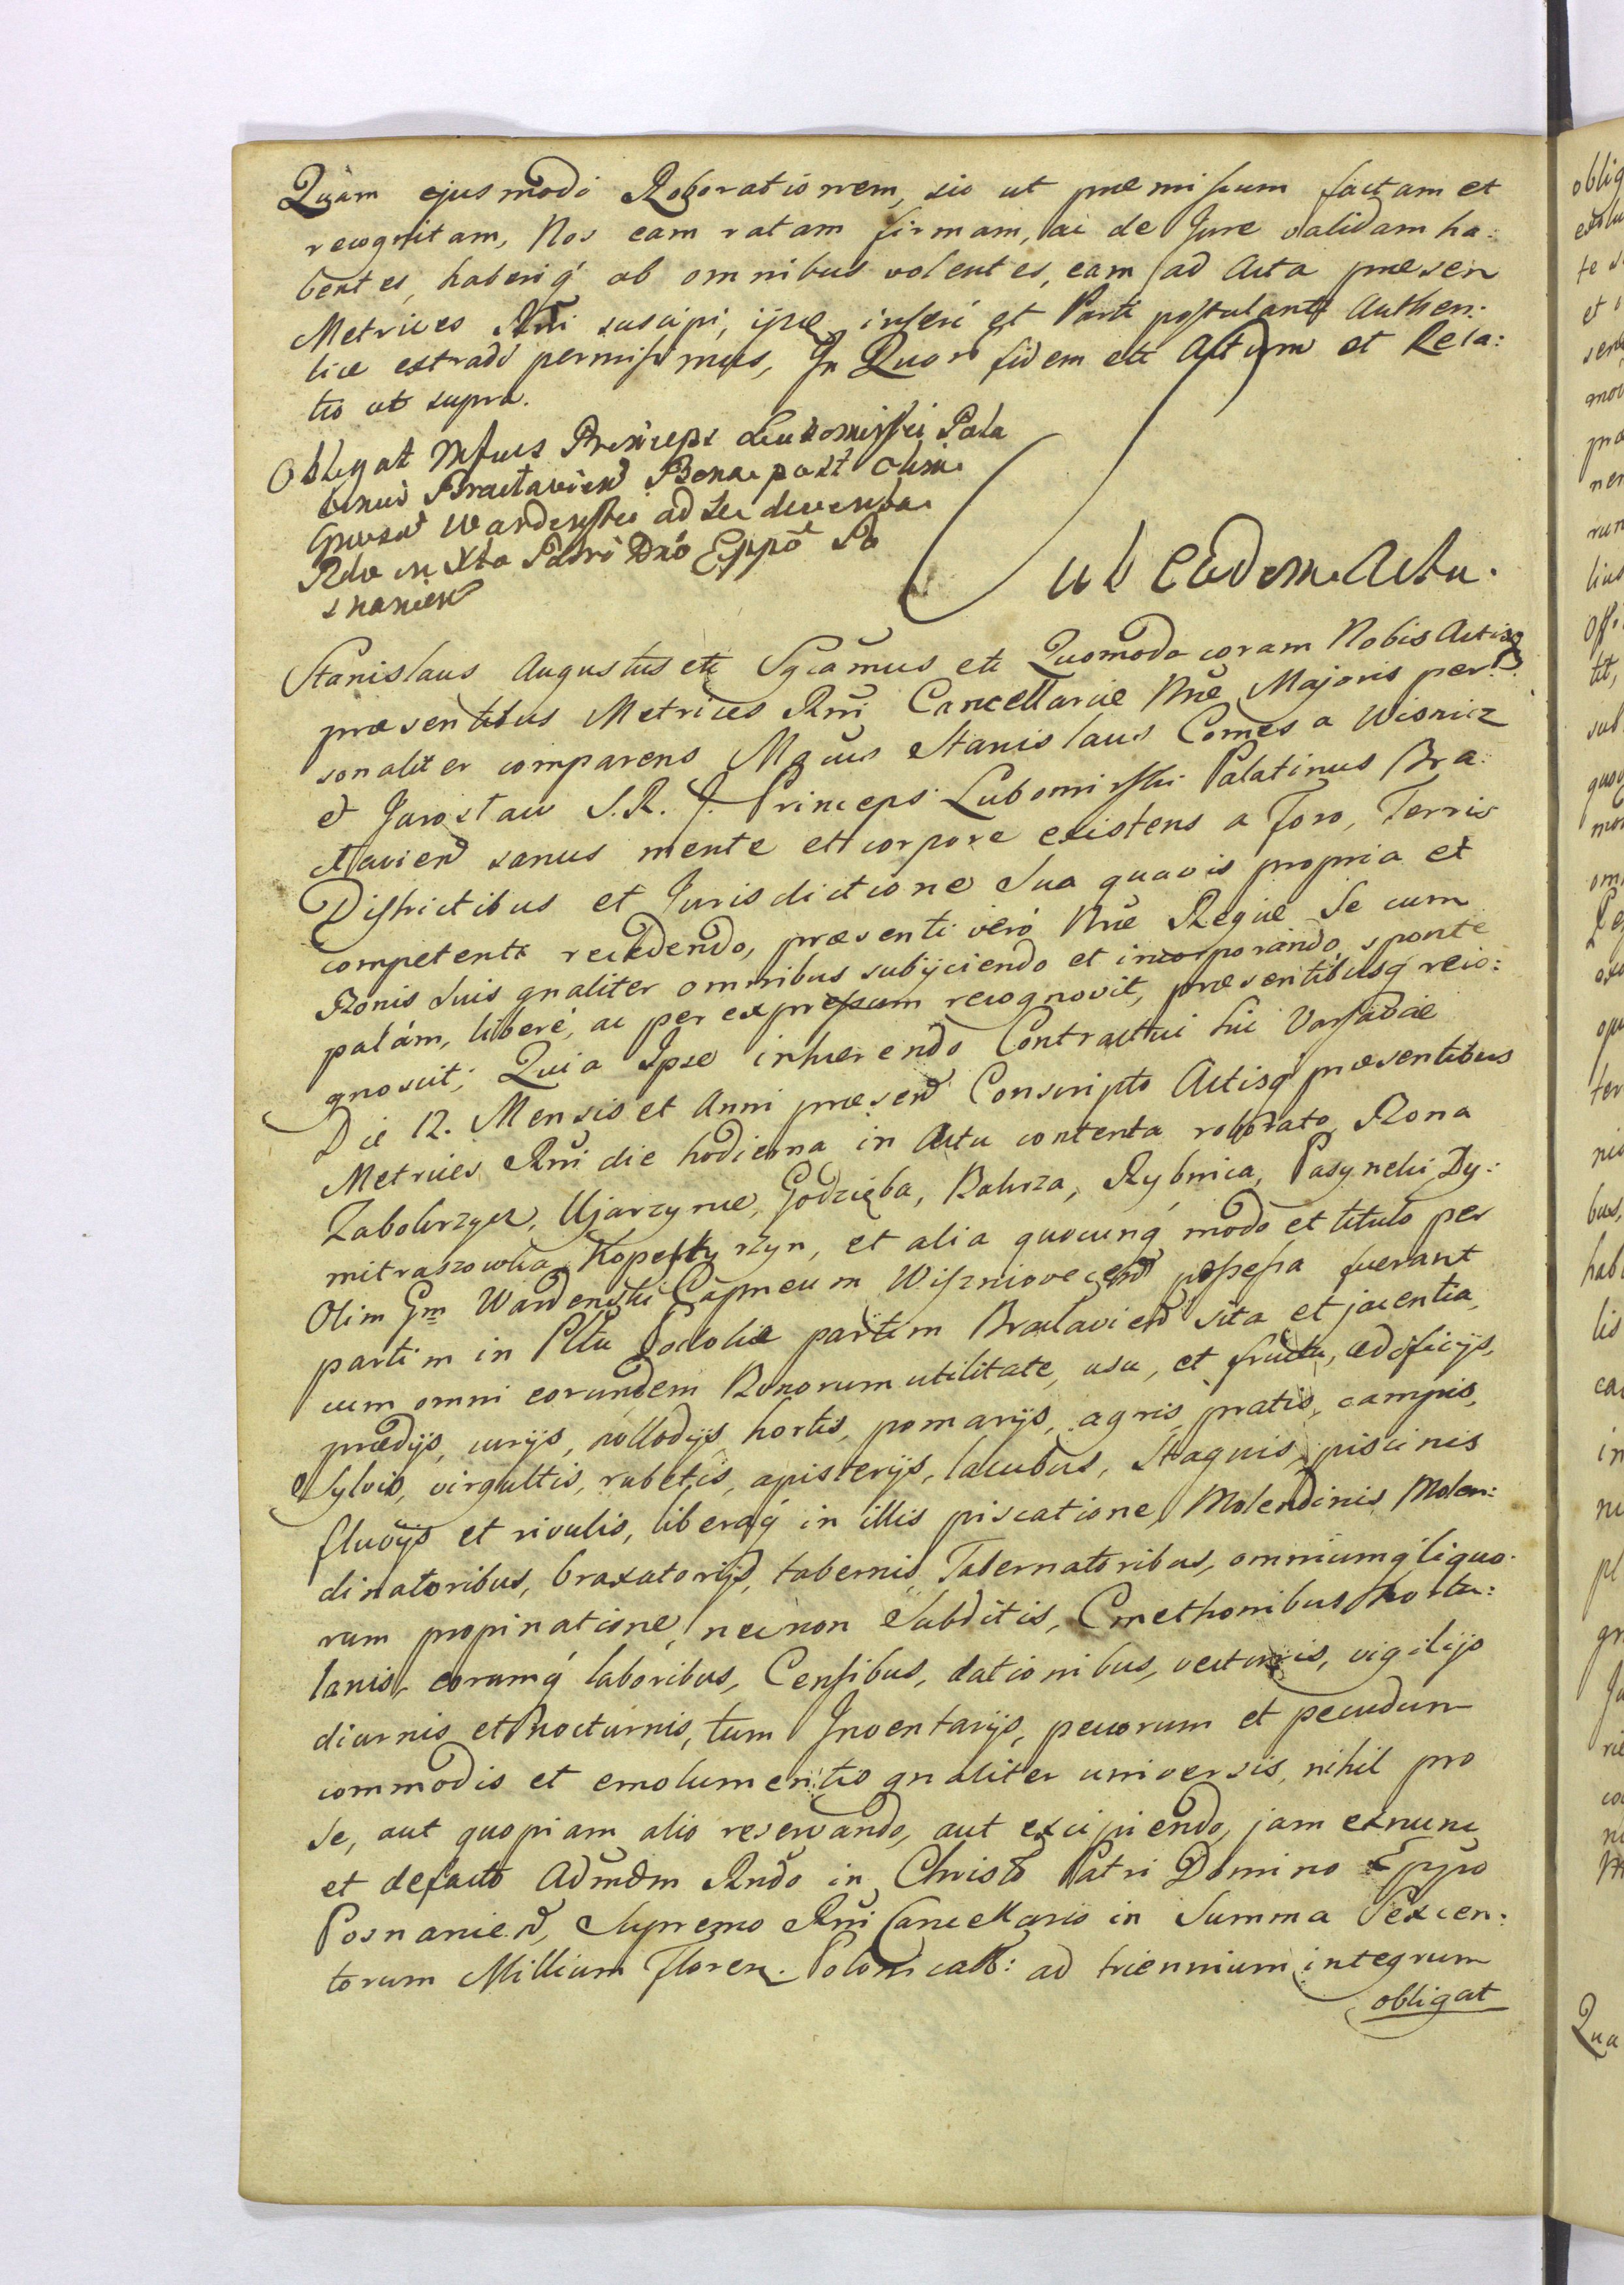 Quàm ejusmodi Roborationem, sic ut præmissum factam et
recognitam, Nos eam ratam firmam, ac de Jure validam ha:
bentes, haberiq́ ab omnibus volentes, eam ad Acta præsen
Metrices Rñi suscipi, ijsq inseri et Parti postulanti Authen:
tice extradi permisimus, In Quor fidem etc Actum et Rela:
tio ut supra.
Obligat Mfcus Princeps Lubomirski Pala
tinus Bractavien Bona post olim
Gnosũ Wardenski ad Se devoluta
Rdo in Xto Patri Dnõ Eppõ Po
snanien
Sub Eadem Actu.
Stanislaus Augustus etc Sgcamus etc Quomodo coram Nobis Actisq
præsentibus Metrices Rñi Cancellariæ Nræ Majoris per:
sonaliter comparens Mgcus Stanislaus Comes a Wisnicz
et Jarostaw S. R. J. Princeps Lubomirski Palatinus Bra:
ctavien sanus mente et corpore existens a Foro, Terris
Districtibus et Jurisdictione Sua quavis propria et
competenti recedendo, præsenti verò Nræ Regiæ Se cum
Bonis Suis gnaliter omnibus subijciendo et incorporando sponte
palám, liberè, ac per expressum recognovit, præsentibusq́ reco:
gnoscit; Quia Ipse inhærendo Contractui hic Varsaviæ
Die 12. Mensis et Anni præsen Conscripto Actisq́ præsentibus
Metrices Rñi die hodierna in Actu contenta roborato Bona
Zabokrzycz, Ujarzynce, Godzięba, Bakrza, Rybnica, Pasynki, Dy:
mitraszowka Kopestyrzyn, et alia quocunq́ modo et titulo per
Olim Gm Wardenski Capneum Wiszniovecen possessa fuerant
partim in Pltu Podoliæ partim Braclavien sita et jacentia,
cum omni eorundem Bonorum utilitate, usu, et fructu, ædificijs,
prædijs, curijs, allodijs, hortis, pomarijs, agris, pratis, campis,
Sylvis, virgultis, rubetis, apisterijs, lacubus, Stagnis, piscinis
fluvijs et rivulis, liberaq́ in illis piscatione, Molendinis, Molen:
dinatoribus, braxatorijs, tabernis, Tabernatoribus, omniumq́ liquo:
rum propinatione, necnon Subditis, Cmethonibus hortu:
lanis, eorumq́ laboribus, Censibus, dationibus, vecturis, vigilijs
diurnis et nocturnis, tum Inventarijs, pecorum et pecudum
commodis et emolumentis gnaliter universis, nihil pro
Se, aut quopiam alio reservando, aut excipiendo, jam exnunc
et defacto Admdm Rndo in Christo Patri Domino Eppo
Posnanien, Supremo Rñi Cancellario in Summa Sexcen:
torum Millium Floren. Polonicalt: ad triennium integrum
obligat